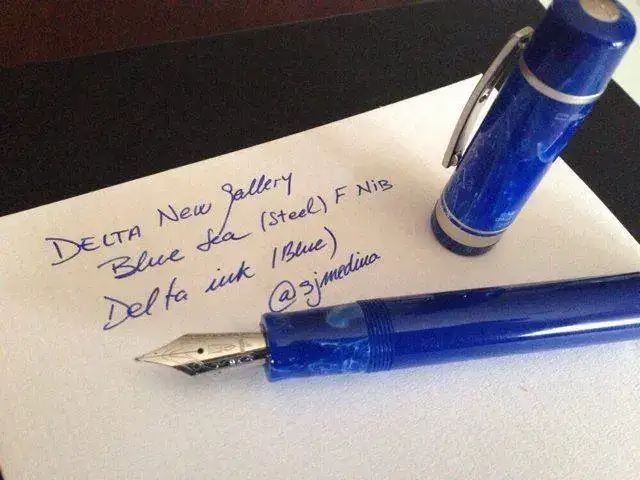 DELTA New Gallery
Blue Sea (Steel) F NiB
Delta ink (Blue)
@sjmedina